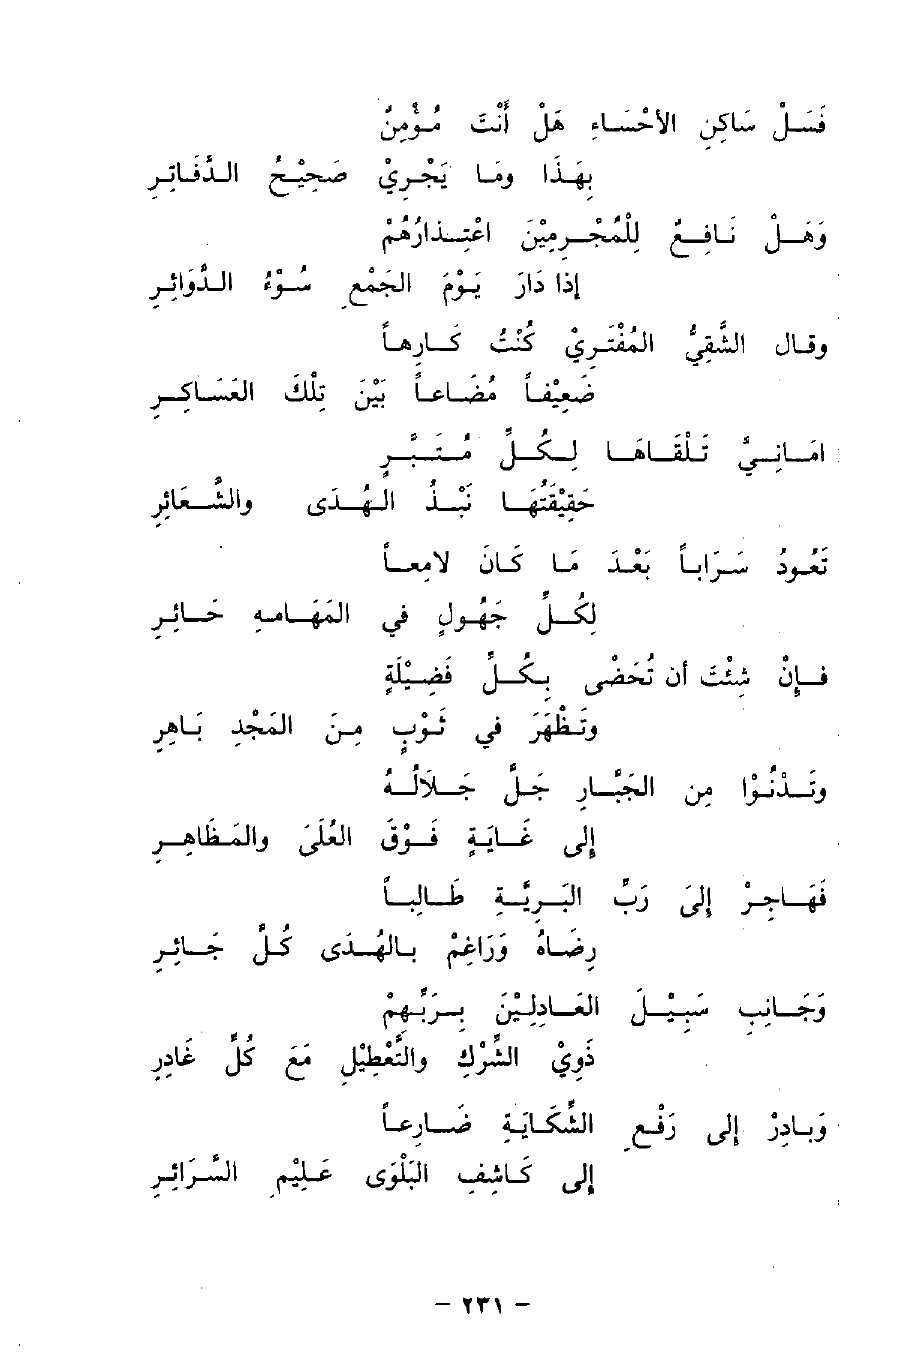 فَسَلْ سَاكِنَ الأَحْسَاءِ هَلْ أَنْتَ مُؤْمِنٌ
بِهَذَا وَمَا يَجْرِيْ صَحِيْحُ الدَّفَاتِرِ
وَهَلْ نَافِعٌ لِلْمُجْرِمِيْنَ اعْتِذَارُهُمْ
إِذَا دَارَ يَوْمَ الجَمْعِ سُوْءُ الدَّوَائِرِ
وقال الشَّقِيُّ المُفْتَرِيْ كُنْتُ كَارِهاً
ضَعِيْفاً مُضَاعاً بَيْنَ تِلْكَ العَسَاكِرِ
امَانِيُّ تَلْقَاهَا لِكُلِّ مُتَبِّرٍ
حَقِيْقَتُهَا نَبْذُ الهُدَى والشَّعَائِرِ
تَعُودُ سَرَاباً بَعْدَ مَا كَانَ لامِعاً
لِكُلِّ جَهُولٍ في المَهَامِهِ حَائِرِ
فَإِنْ شِئْتَ أن تُحْضَى بِكُلِّ فَضِيْلَةٍ
وتَظْهَرَ في ثَوْبٍ مِنَ المَجْدِ بَاهِرِ
وتَدْنُوْا مِن الجَبَّارِ جَلَّ جَلَالُهُ
إلى غَايَةٍ فَوْقَ العُلَىَ والمَظَاهِرِ
فَهَاجِرْ إِلَىَ رَبِّ البَرِيَّةِ طَالِباً
رِضَاهُ وَرَاغِمْ بِالهُدَى كُلَّ جَائِرِ
وَجَانِبِ سَبِيْلَ العَادِلِيْنَ بِرَبِّهِمْ
ذَوِيْ الشِّرْكِ والتَّعْطِيْلِ مَعَ كُلِّ غَادِرِ
وَبَادِرْ إلى رَفْعِ الشَّكَايَةِ ضَارِعاً
إلى كَاشِفِ البَلْوَى عَلِيْمِ السَّرَائِرِ
- ٢٣١ -